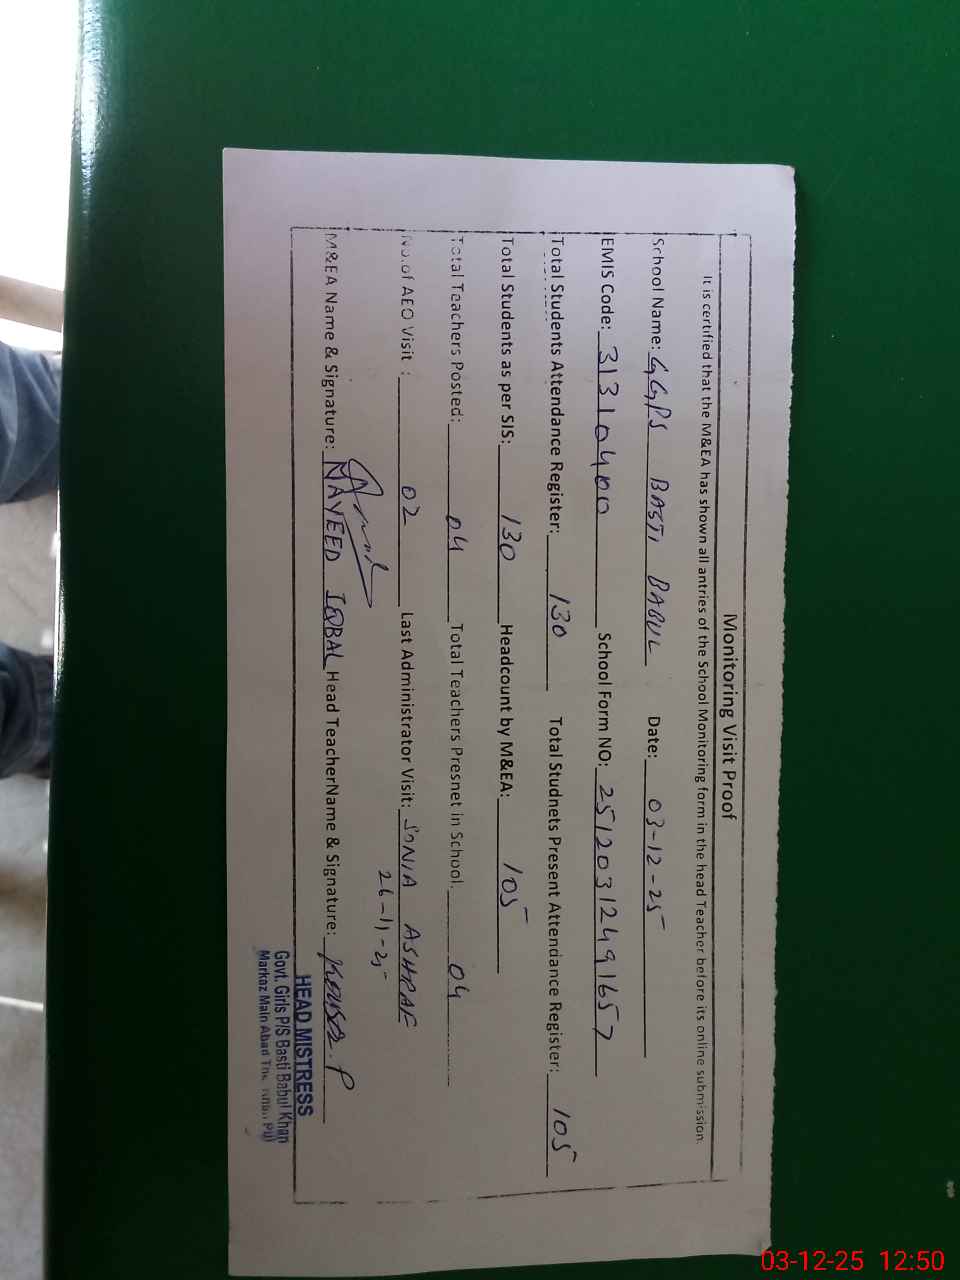 Monitoring Visit Proof
It is certified that the M&EA has shown all antries of the School Monitoring form in the head Teacher before its online submission.
School Name: GGPS BASTI BABUL Date: 03-12-25
EMIS Code: 31310400 School Form NO: 25120312491657
Total Students Attendance Register: 130 Total Studnets Present Attendance Register: 105
Total Students as per SIS: 130 Headcount by M&EA: 105
Total Teachers Posted: 04 Total Teachers Presnet in School. 04
No.of AEO Visit : 02 Last Administrator Visit: SONIA ASHRAF
26-11-25
M&EA Name & Signature: NAVEED IQBAL Head TeacherName & Signature: P
HEAD MISTRESS
Govt. Girls P/S Basti Babul Khan
Markaz Main Abad
03-12-25 12:50